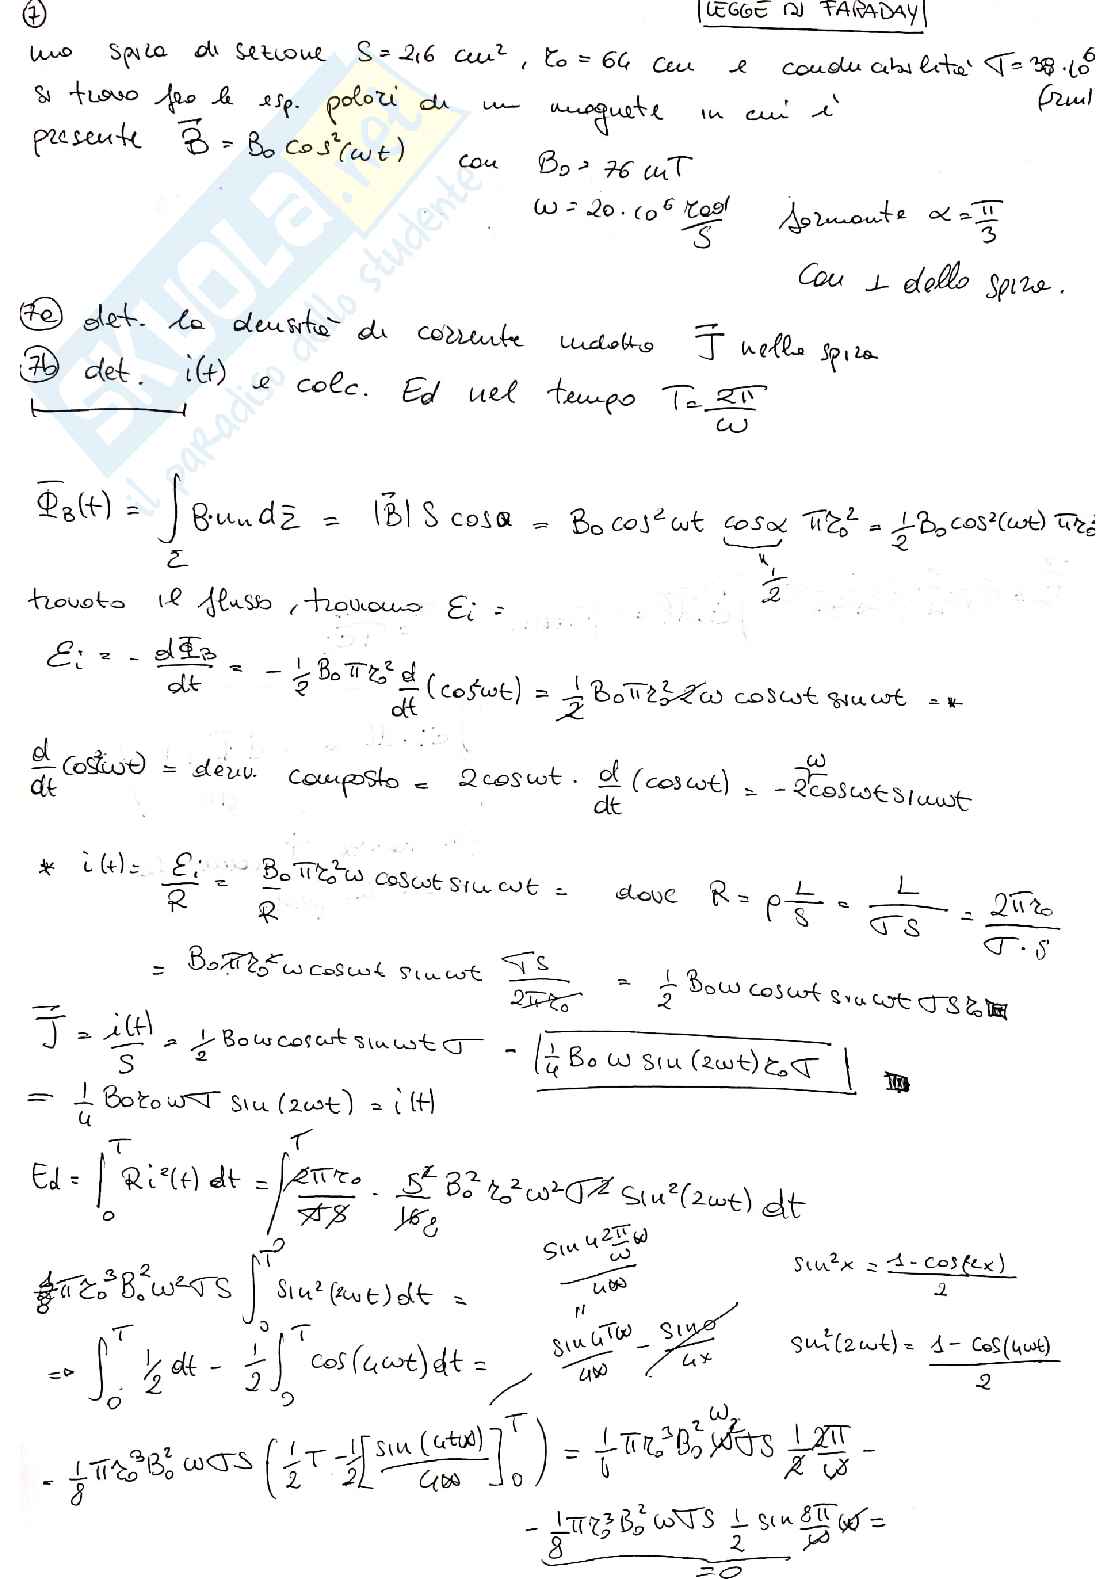 7
LEGGE DI FARADAY
una spira di sezione S = 2,6 cm², r₀ = 64 cm e conducibilità σ = 38·10⁶
si trova fra le esp. polari di un magnete in cui è (Ωm)
presente B⃗ = B₀ cos²(ωt) con B₀ = 76 mT
ω = 20·10⁶ rad/s formante α = π/3
con ⊥ della spira.
7a det. la densità di corrente indotta J⃗ nella spira
7b det. i(t) e calc. Ed nel tempo T = 2π/ω
Φ_B(t) = ∫_Σ B·u_n dΣ = |B⃗| S cosα = B₀ cos²ωt cosα πr₀² = 1/2 B₀ cos²(ωt) πr₀²
1/2
trovato il flusso, troviamo Ei =
Ei = - dΦ_B/dt = - 1/2 B₀πr₀² d/dt (cos²ωt) = 1/2 B₀πr₀² 2ω cosωt sinωt = *
d/dt (cos²ωt) = deriv. composta = 2cosωt · d/dt (cosωt) = -2ω cosωt sinωt
* i(t) = Ei/R = B₀πr₀²ω/R cosωt sinωt = dove R = ρ L/S = L/σS = 2πr₀/σ·S
= B₀πr₀²ω cosωt sinωt σS/2πr₀ = 1/2 B₀ω cosωt sinωt σS r₀
J⃗ = i(t)/S = 1/2 B₀ω cosωt sinωt σ - 1/4 B₀ω sin(2ωt) r₀σ
= 1/4 B₀r₀ωσ sin(2ωt) = i(t)
Ed = ∫₀ᵀ Ri²(t) dt = ∫₀ᵀ 2πr₀/σS · S²/16 8 B₀² r₀² ω² σ² sin²(2ωt) dt
1/8 πr₀³B₀²ω²σS ∫₀ᵀ sin²(2ωt) dt = sin 4 2π/ω ω / 4ω sin²x = 1-cos(2x)/2
=> ∫₀ᵀ 1/2 dt - 1/2 ∫₀ᵀ cos(4ωt) dt = sin 4Tω/4ω - sin0/4x sin²(2ωt) = 1-cos(4ωt)/2
- 1/8 πr₀³B₀² ωσS (1/2 T - 1/2 [sin(4tω)/4ω]₀ᵀ) = 1/8 πr₀³B₀² ω² σS 1/2 2π/ω -
- 1/8 πr₀³B₀² ωσS 1/2 sin 8π/ω ω =
= 0
SKUOLA.net
il paradiso dello studente